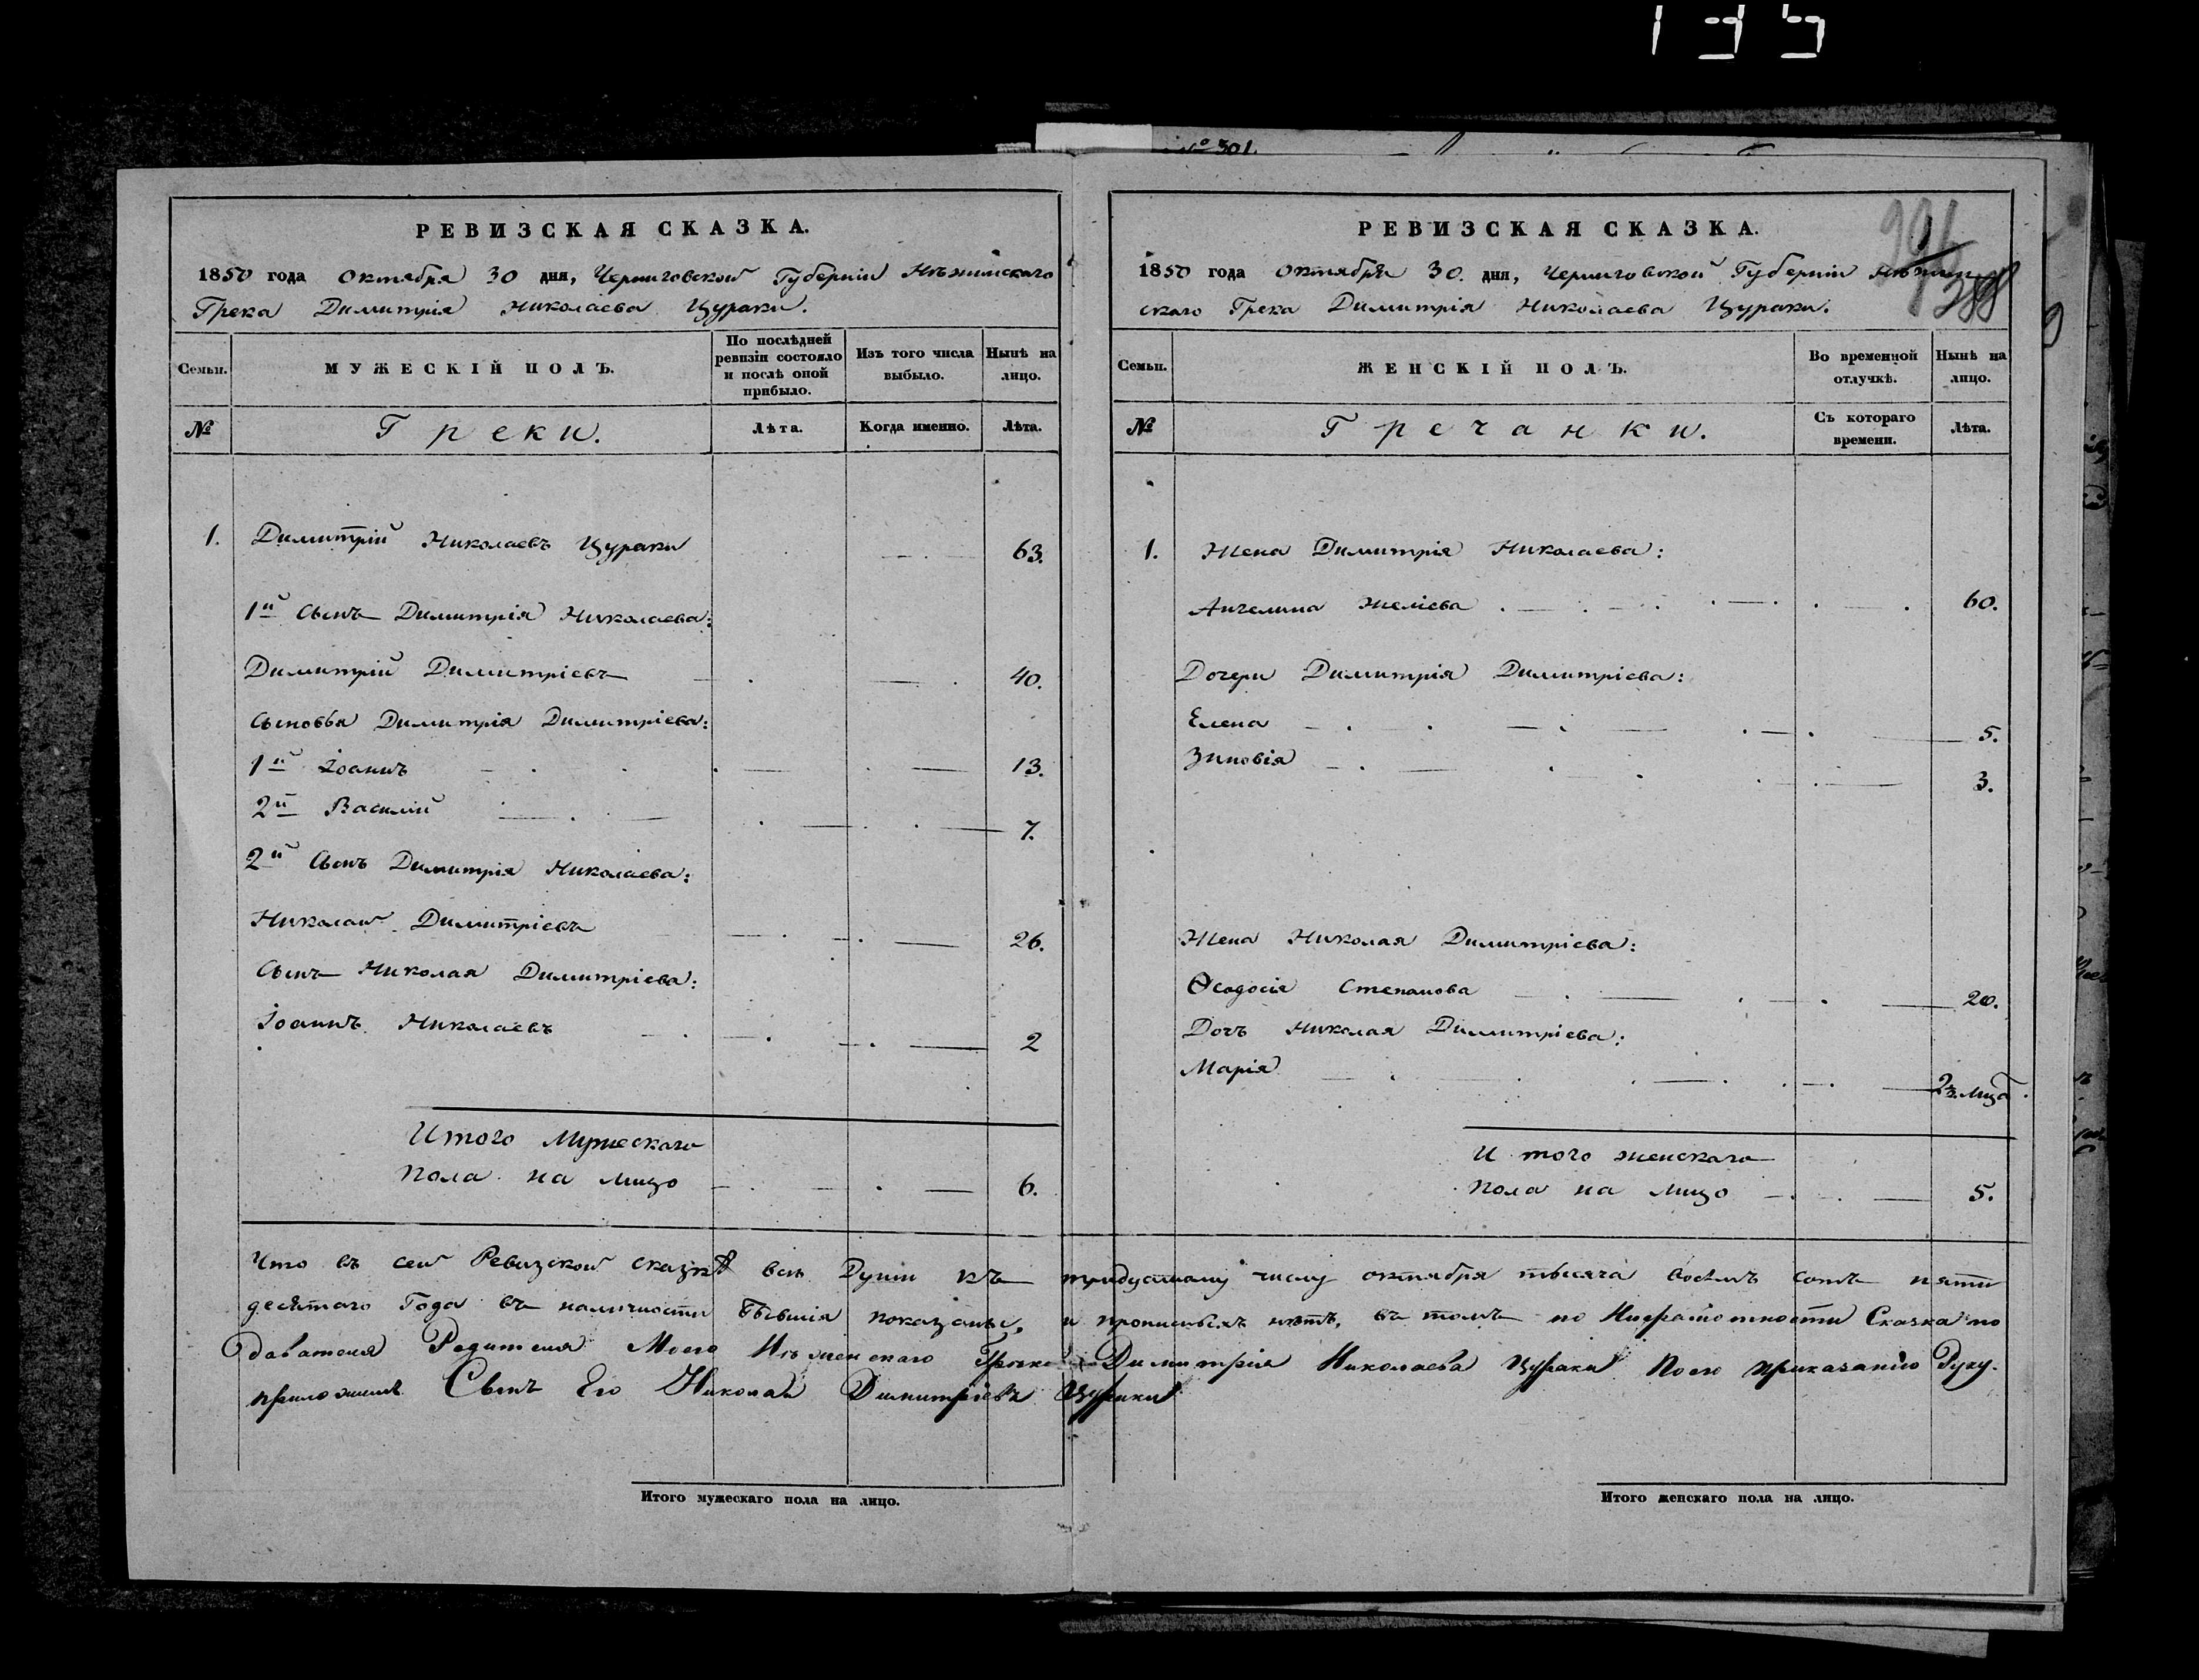 135
№ 301.
РЕВИЗСКАЯ СКАЗКА.
1850 года октября 30 дня, Черниговской Губернiи Нѣжинскаго
Грека Димитрiя Николаева Цураки.
Семьи.
МУЖЕСКIЙ ПОЛЪ.
По послѣдней ревизiи состояло и послѣ оной прибыло.
Изъ того числа выбыло.
Нынѣ на лицо.
№
Греки.
Лѣта.
Когда именно.
Лѣта.
1. Димитрiй Николаевъ Цураки 63.
1й Сынъ Димитрiя Николаева:
Димитрiй Димитрiевъ 40.
Сыновья Димитрiя Димитрiева:
1й Iоаннъ 13.
2й Василiй 7.
2й Сынъ Димитрiя Николаева:
Николай Димитрiевъ 26.
Сынъ Николая Димитрiева:
Iоаннъ Николаевъ 2
Итого Мужескаго
пола на лицо 6.
РЕВИЗСКАЯ СКАЗКА.
1850 года октября 30. дня, Черниговской Губернiи Нѣжин
скаго Грека Димитрiя Николаева Цураки.
388
Семьи.
ЖЕНСКIЙ ПОЛЪ.
Во временной отлучкѣ.
Нынѣ на лицо.
№
Гречанки.
Съ котораго времени.
Лѣта.
1. Жена Димитрiя Николаева:
Ангелина 60.
Дочери Димитрiя Димитрiева:
Елена 5.
Зиновiя 3.
Жена Николая Димитрiева:
Ѳеодосiя Степанова 20.
Дочь Николая Димитрiева:
Марiя
И того женскаго
пола на лицо 5.
Что въ сей Ревизской сказкѣ всѣ Души къ тридцатому числу октября тысяча восемъ сотъ пяти
десятаго Года въ наличности бывшiя показаны, и прописныхъ нѣтъ, въ томъ по Неграмотности Сказкапо
давателя Родителя Моего Нѣженскаго Грека Димитрiя Николаева Цураки Поего приказанiю Руку-
приложилъ Сынъ Его Николай Димитрiевъ Цураки
Итого мужескаго пола на лицо.
Итого женскаго пола на лицо.